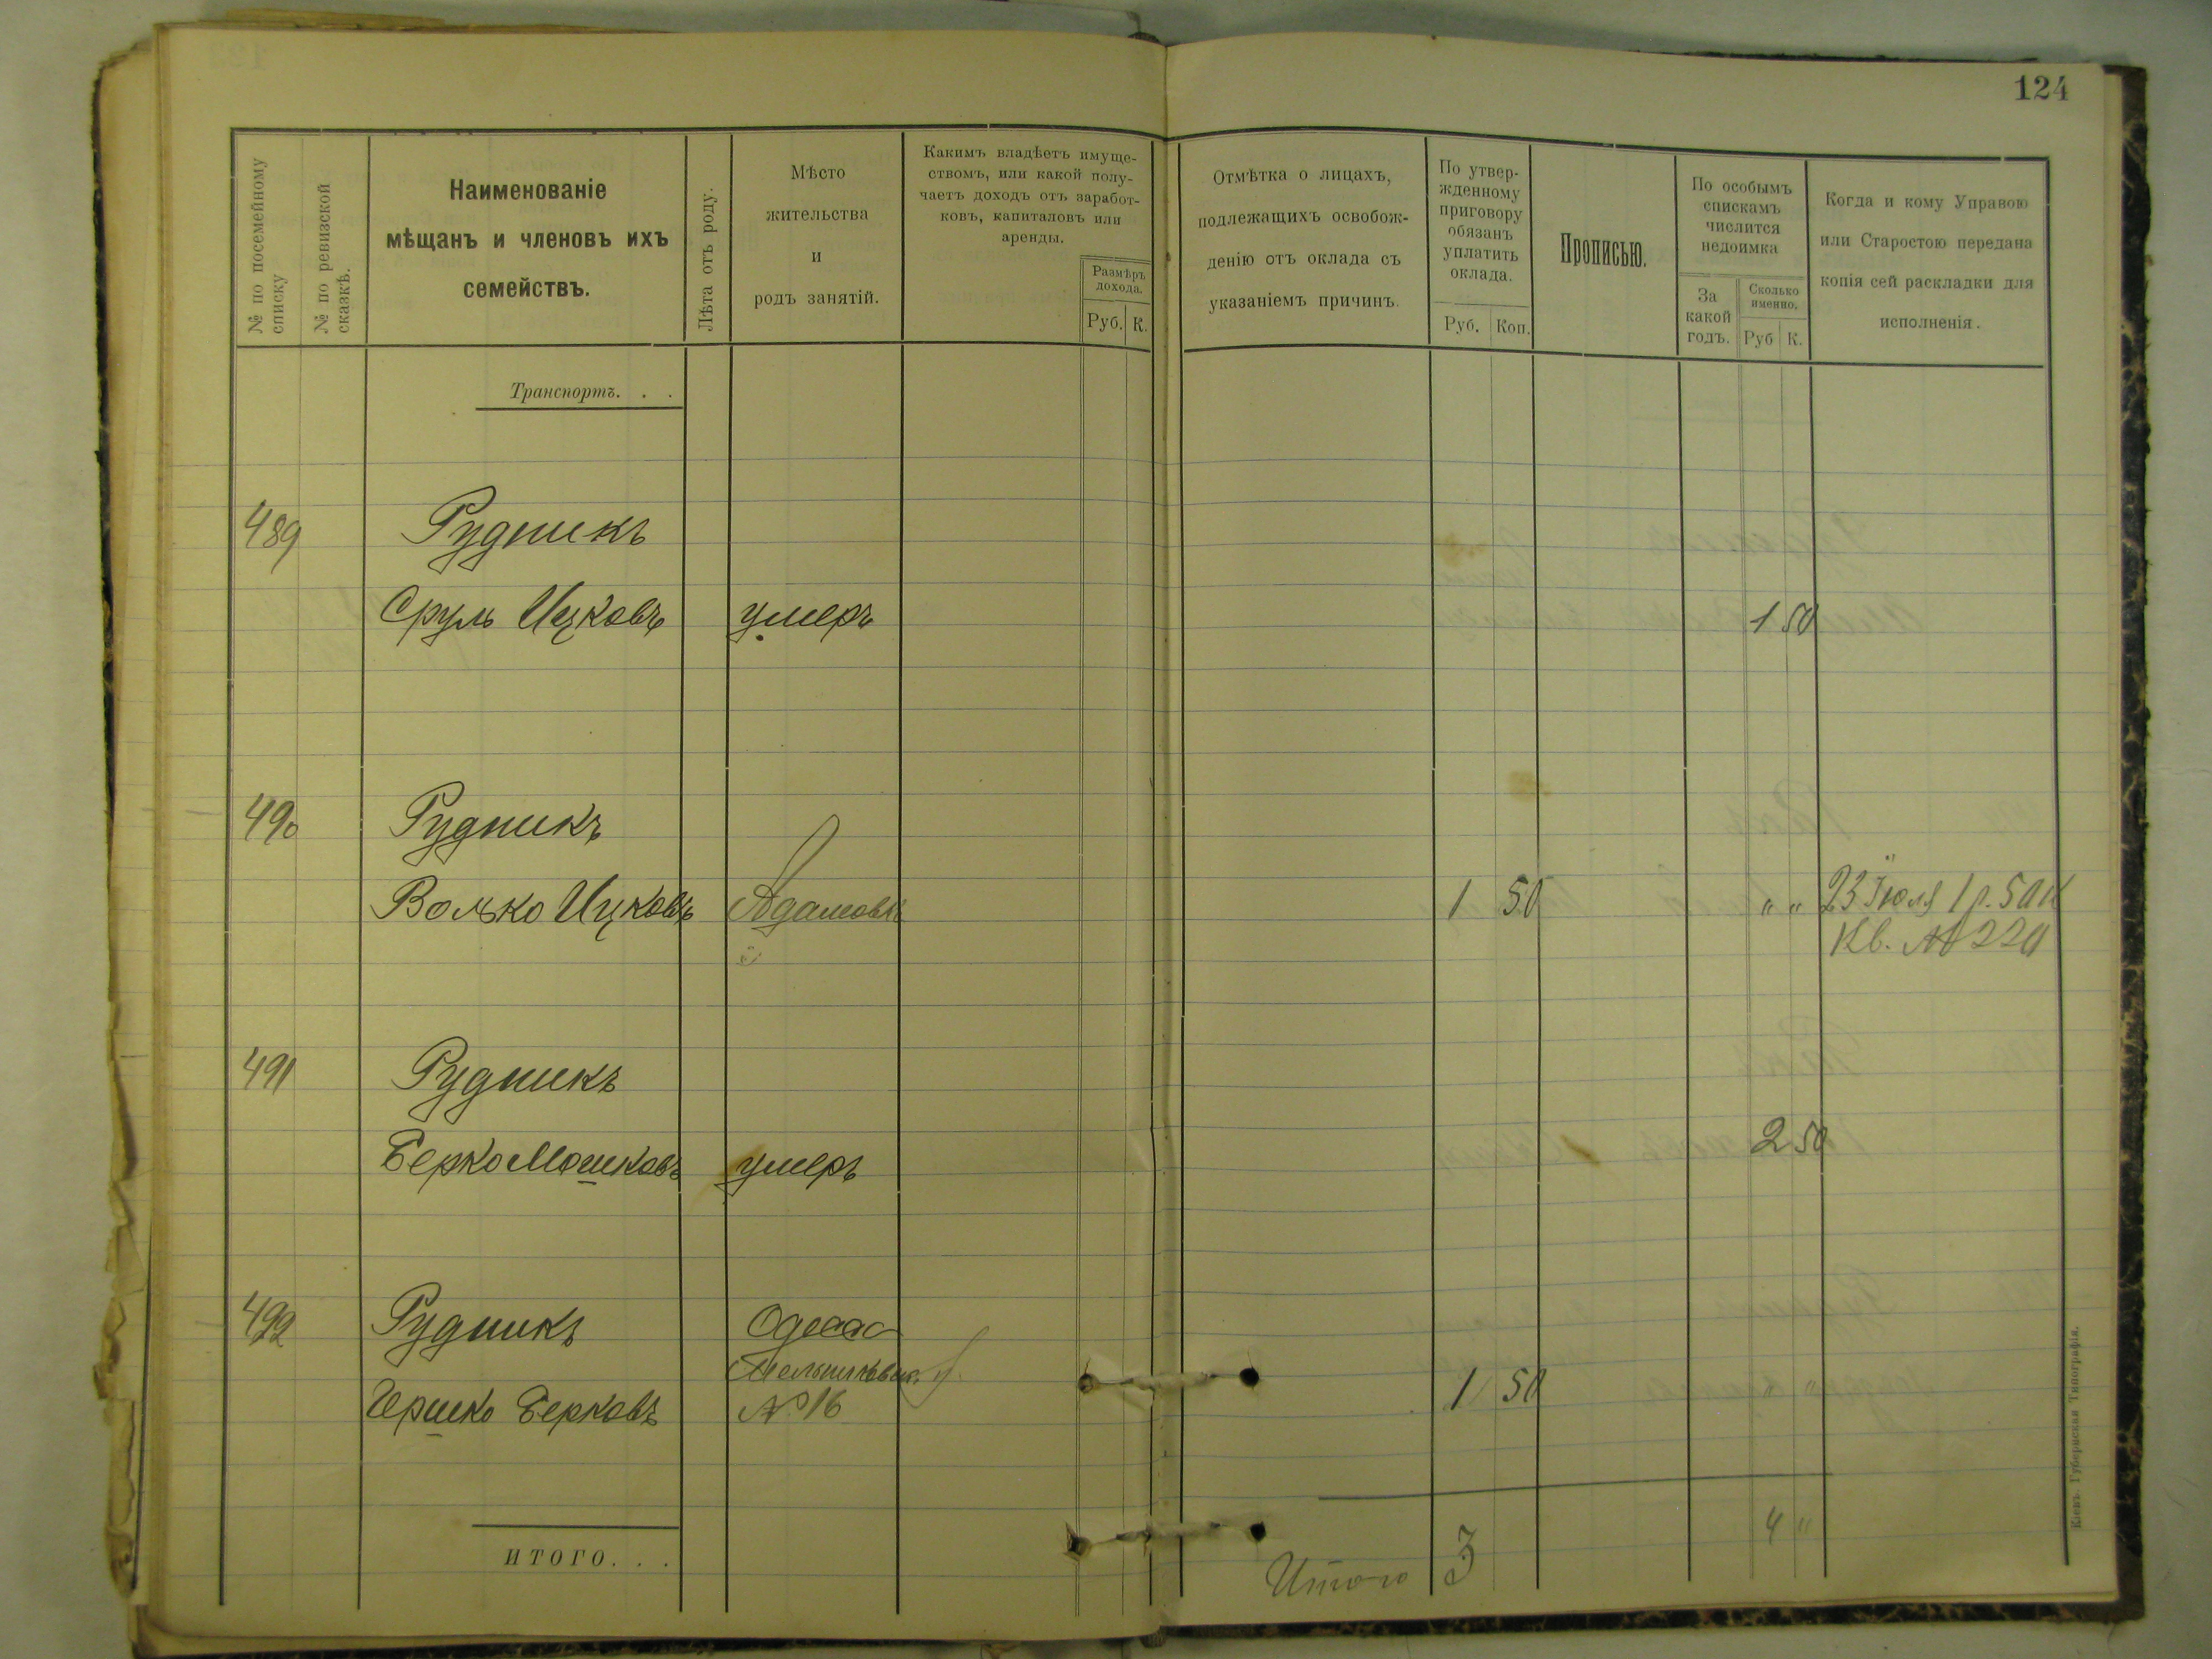 124
№ по посемейному
списку
№ по ревизской
сказкѣ.
Наименованіе
мѣщанъ и членовъ ихъ
семействъ.
Лѣта отъ роду.
Мѣсто
жительства
и
родъ занятій.
Какимъ владѣетъ имуще-
ствомъ, или какой полу-
чаетъ доходъ отъ заработ-
ковъ, капиталовъ или
аренды.
Размѣръ
дохода.
Руб. К.
Отмѣтка о лицахъ,
подлежащихъ освобож-
денію отъ оклада съ
указаніемъ причинъ.
По утвер-
жденному
приговору
обязанъ
уплатить
оклада.
Руб. Коп.
Прописью.
По особымъ
спискамъ
числится
недоимка
За
какой
годъ.
Сколько
именно.
Руб К.
Когда и кому Управою
или Старостою передана
копія сей раскладки для
исполненія.
Транспортъ. . .
489 Рудникъ
Сруль Ицковъ умеръ 1 50
490 Рудникъ
Волько Ицковъ Адамовка 1 50 " " 23 Іюля 1 р. 50 к
Кв. № 220
491 Рудникъ
Берко Мошковъ умеръ 2 50
492 Рудникъ Одесса
Гершко Берковъ № 16 1 50 " "
4 "
ИТОГО. . .
Итого 3
Кіевъ. Губернская Типографія.